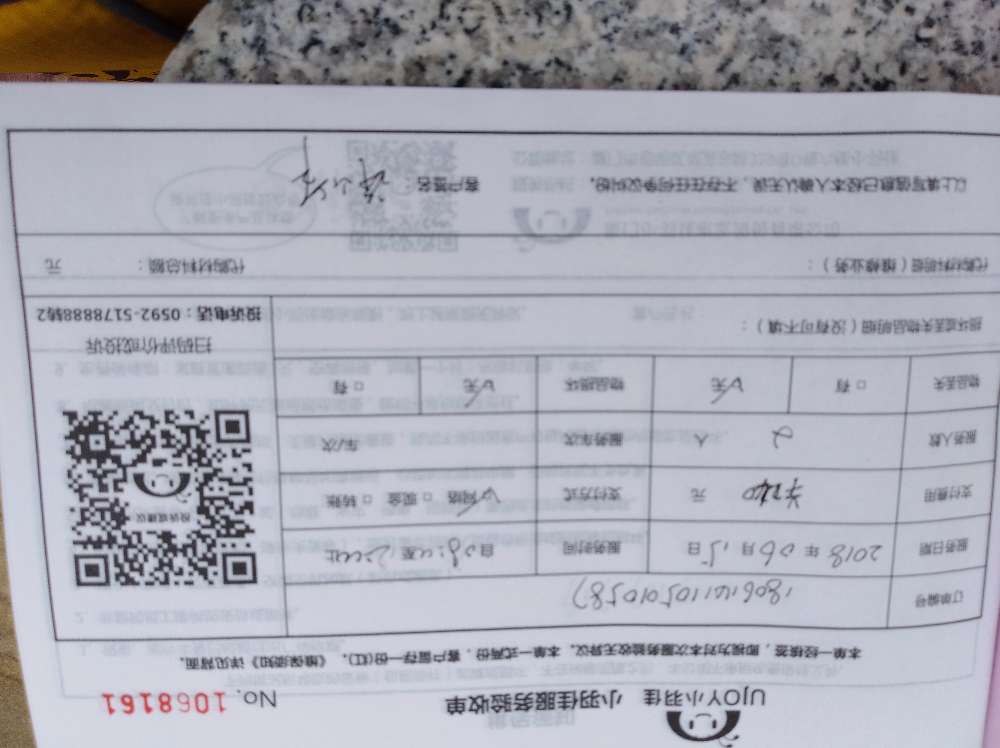 UJOY小羽佳 小羽佳服务验收单 No. 1068161
本单一经核签,即视为对本次服务验收无异议。本单一式两份,客户留存一份(红)。《维保须知》详见背面。
订单编号
服务日期 2018 年 06 月 15 日 服务时间
支付费用 元 支付方式 ☑网络 □现金 □转账
服务人数 2 人 服务车次 车/次
物品丢失 □有 ☑无 物品损坏 ☑无 □有
投诉或建议
扫码评价或投诉
投诉电话:0592-5178888转2
损坏或丢失物品明细(没有可不填):
代购材料明细(维修业务): 代购材料总额: 元
以上填写信息已经本人确认无误,不存在任何争议纠纷。 客户签名: